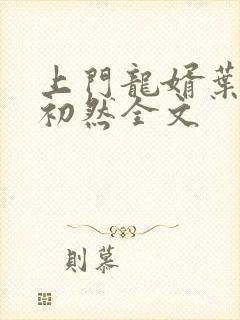 上門龍婿葉
初然全文
則慕